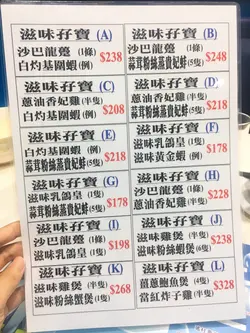 滋味孖寶 (A)
沙巴龍躉 (1條)
白灼基圍蝦 (例)
$238
滋味孖寶 (B)
沙巴龍躉 (1條)
蒜茸粉絲蒸貴妃蚌(5隻)
$248
滋味孖寶 (C)
蔥油香妃雞 (半隻)
白灼基圍蝦 (例)
$208
滋味孖寶 (D)
蔥油香妃雞 (半隻)
蒜茸粉絲蒸貴妃蚌(5隻)
$218
滋味孖寶 (E)
白灼基圍蝦 (例)
蒜茸粉絲蒸貴妃蚌(5隻)
$218
滋味孖寶 (F)
滋味乳鴿皇 (1隻)
滋味黃金蝦 (例)
$178
滋味孖寶 (G)
滋味乳鴿皇 (1隻)
蒜茸粉絲蒸貴妃蚌(5隻)
$178
滋味孖寶 (H)
蔥油香妃雞 (半隻)
沙巴龍躉 (1條)
$228
滋味孖寶 (I)
沙巴龍躉 (1條)
滋味乳鴿皇 (1隻)
$198
滋味孖寶 (J)
滋味雞煲 (半隻)
滋味粉絲蝦煲 (例)
$238
滋味孖寶 (K)
滋味雞煲 (半隻)
滋味粉絲蟹煲
$268
滋味孖寶 (L)
薑蔥鮑魚煲 (例)
當紅炸子雞 (半隻)
$328